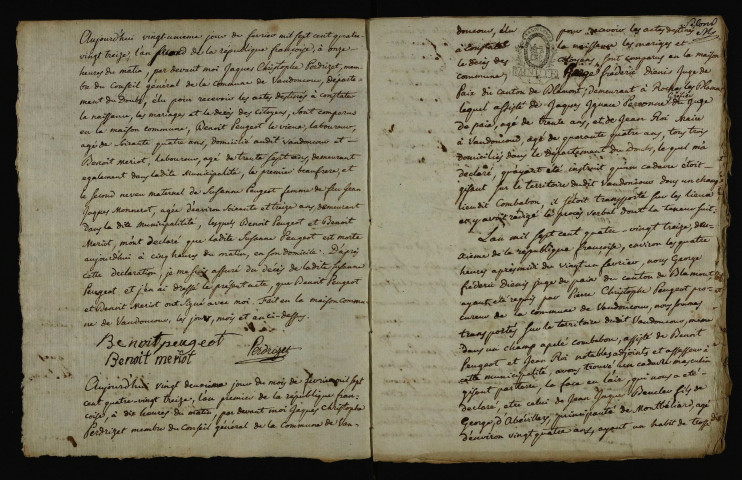 Aujourd'hui vingt-unieme jour de fevrier mil sept cent quatre
vingt treize, l'an second de la république françoise, à onze
heures du matin, par devant moi Jaques Christophe Perdrizet, mem-
bre du Conseil général de la Commune de Vandoncour, departe-
ment du Doubs, élu pour recevoir les actes destinés à constater
la naissance, les mariages et le decès des Citoyens, sont comparus
en la maison commune, Benoit Peugeot le vieux, laboureur,
agé de soixante quatre ans, domicilié audit vandoncour et
Benoit meriot, laboureur, agé de trente sept ans, demeurant
egalement dans ladite Municipalité, le premier beaufrere, et
le second neveu maternel de Susanne Peugeot femme de feu Jean
Jaques Monnerot, agée d'environ soixante et treize ans, demeurant
dans ladite municipalité, lesquels Benoit Peugeot et Benoit
Meriot, m'ont déclaré que ladite Susanne Peugeot est morte
aujourd'hui à cinq heures du matin, en son domicile. D'après
cette declaration, je me suis assuré du décès de ladite Susanne
Peugeot et j'en ai dressé le present acte, que Benoit Peugeot
et Benoit Meriot ont signé avec moi. Fait en la maison commu-
ne de Vandoncour, les jour, mois et an ci-dessus.
Benoit peugeot
Benoit meriot Perdrizet
Aujourd'hui vingt deuxieme jour du mois de fevrier mil sept
cent quatre-vingt treize, l'an premier de la république fran-
çoise, à dix heures du matin, par devant moi Jaques Christophe
Perdrizet membre du Conseil général de la Commune de Van-
doncour, élu pour recevoir les actes destinés
à constater la naissance, les mariages et
le decès des citoyens, sont comparus en la maison
commune, frédéric dienis Juge de
Paix du canton de Blamont, demeurant à Roches les Blamont
lequel assisté de Jaques Ignace Greffier du Juge
de paix, agé de trente ans, et de Jean Roi Maire
à Vandoncour, agé de quarante quatre ans, tous trois
domiciliés dans le departement du Doubs, lequel m'a
déclaré, qu'ayant été instruit qu'un cadavre étoit
gisant sur le territoire dudit Vandoncour dans un champ
lieudit Combalon, il s'étoit transporté sur les lieux
et y avoit rédigé le procès verbal dont la teneur suit:
L'an mil sept cent quatre-vingt treize, deu-
xieme de la république françoise, environ les quatre
heures après midi du vingt un fevrier, nous George
frédéric dienis juge de paix du canton de Blamont
ayant été requis par Pierre Christophe Peugeot pro-
cureur de la commune de Vandoncour, nous sommes
transportés sur le territoire dudit Vandoncour, même
dans un champ apelé Combalon, assisté de Benoit
Peugeot et Jean Roi notables adjoints et assesseur à
cette municipalité, avons trouvé un cadavre masculin
gisant par terre, la face en l'air, qui nous a été
declaré, etre celui de Jean Jaque fils de
George d'Abévillers, principauté de Montbéliard, agé
d'environ vingt quatre ans, ayant un habit de